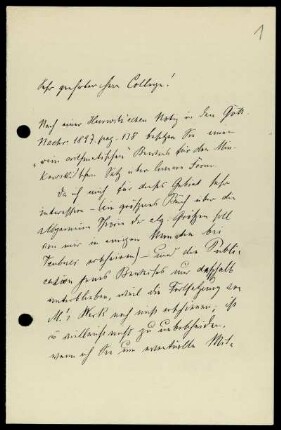 1
Sehr geehrter Herr College!
Nach einer Hurwitz'schen Notiz in den Gött.
Nachr. 1897. pag. 138 besitzen Sie einen
„rein arithmetischen" Beweis für den Min-
kowski'schen Satz über lineare Formen.
Da ich mich für dieses Gebiet sehr
interessire – ein größeres Buch über die
allgemeine Theorie der alg. Größen soll
von mir in einigen Monaten bei
Teubner erscheinen – und die Publi-
cation Ihres Beweises nur deshalb
unterblieben, weil die Fortsetzung von
M.'s Werk noch nicht erschienen, ist
es vielleicht nicht zu unbescheiden,
wenn ich Sie um eventuelle Mit-